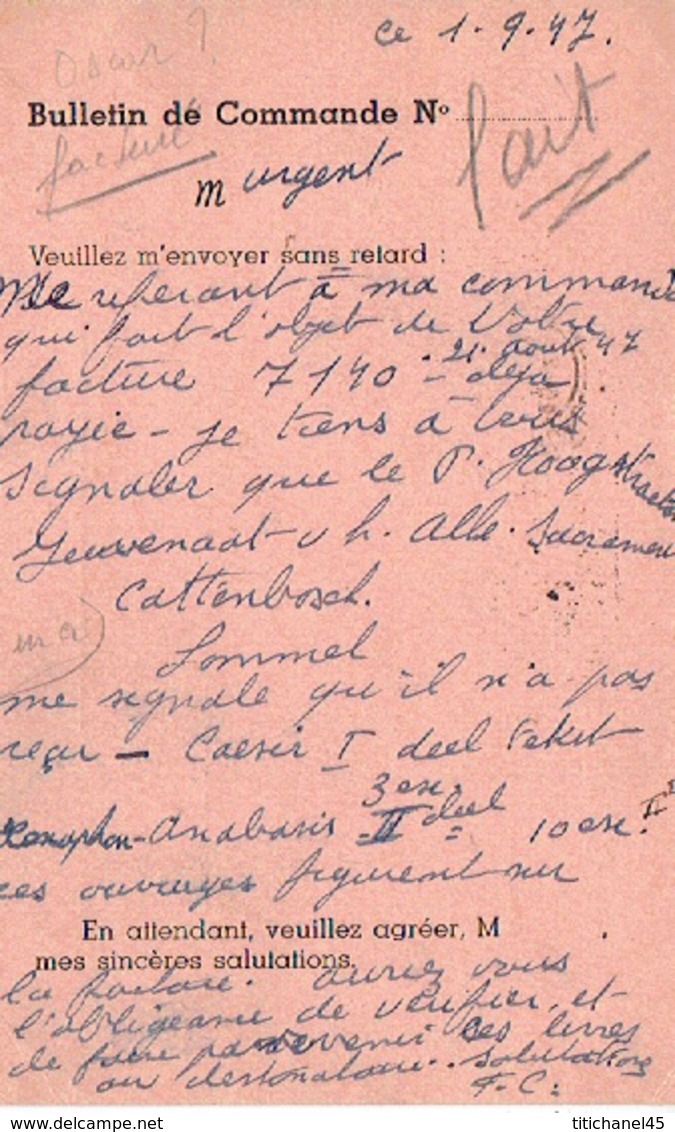 ce 1.9.47.
Oscar ?
Bulletin de Commande Nº
facture
fait
M urgent
Veuillez m'envoyer sans retard :
Me referant à ma commande
qui fait l'objet de Votre
21. août 47
facture 7140 - déja
payie - je tiens à vous
signaler que le P. Hoogstraeten
Juvenaat v h. Allh. Sacrament
Cattenbosch.
Lommel
me signale qu'il n'a pas
reçu - Caesar I deel tekst
3 ex.
Xenophon - Anabasis II deel 10 ex.
ces ouvrages figurent sur
En attendant, veuillez agréer, M
mes sincères salutations.
la facture. auriez vous
l'obligeance de verifier, et
de faire parvenir ces livres
au destinataire. Salutations
F.C.
titichanel45